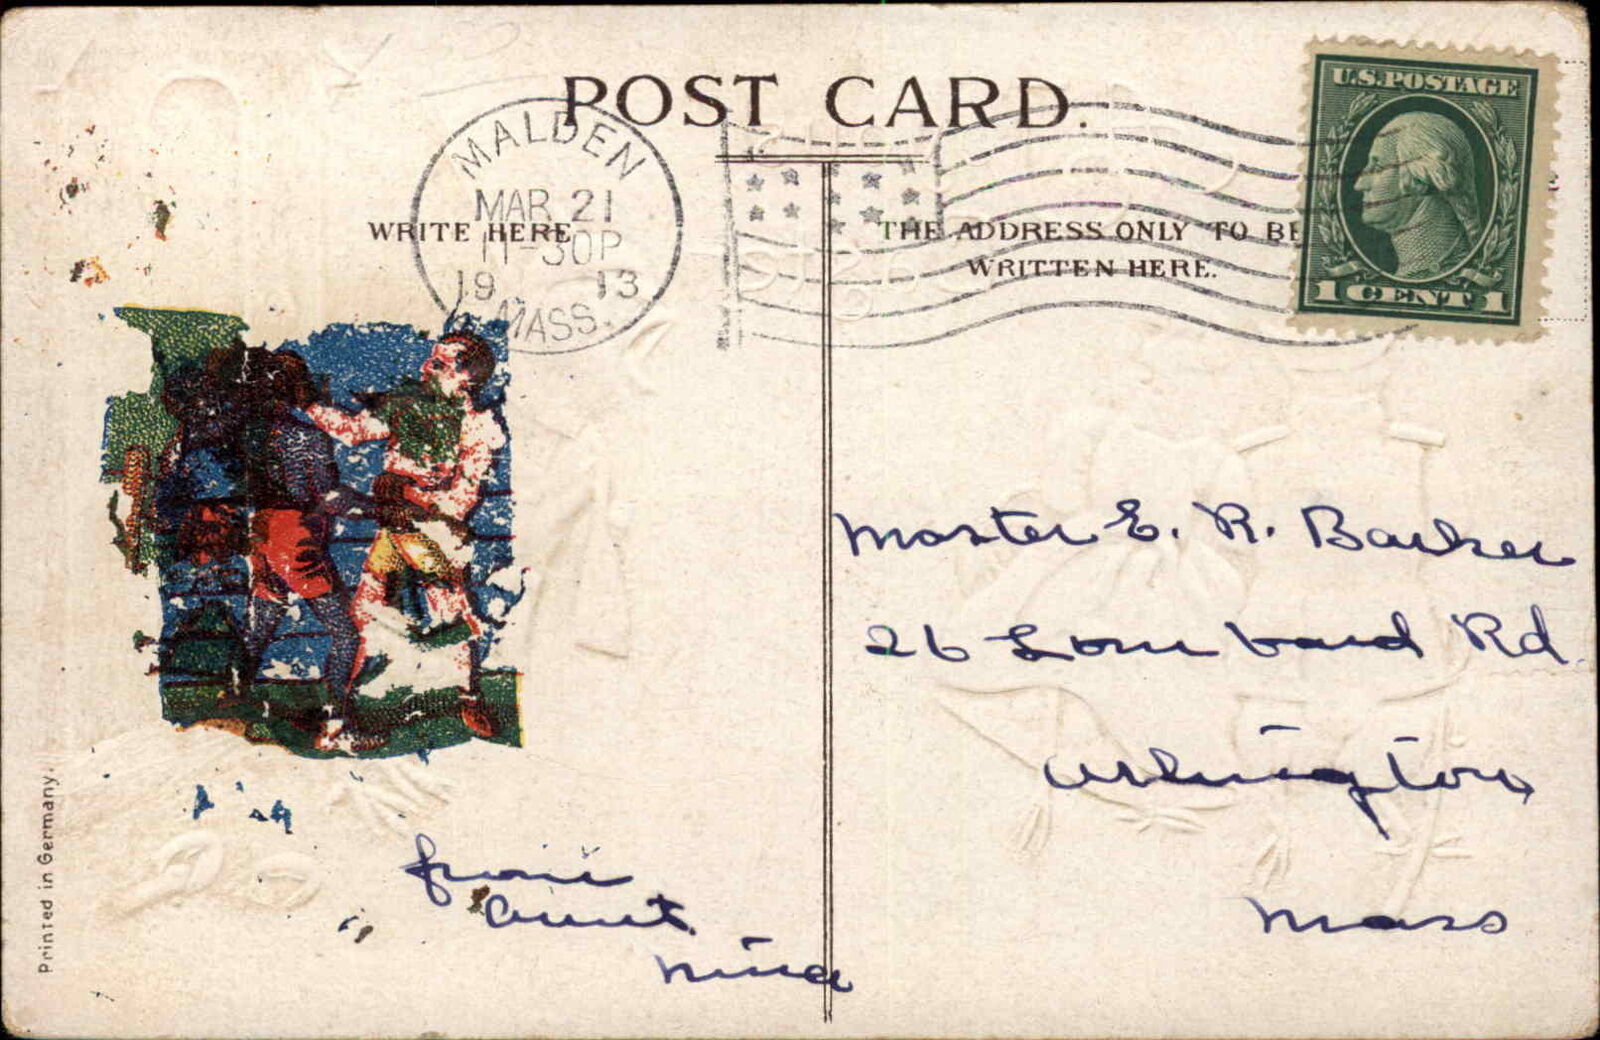 POST CARD.
MALDEN
MAR 21
11-30P
1913
MASS.
U.S. POSTAGE
1 CENT 1
WRITE HERE
THE ADDRESS ONLY TO BE
WRITTEN HERE.
Master E. R. Barker
26 Lombard Rd.
Arlington
Mass
from
Aunt
Nina
Printed in Germany.